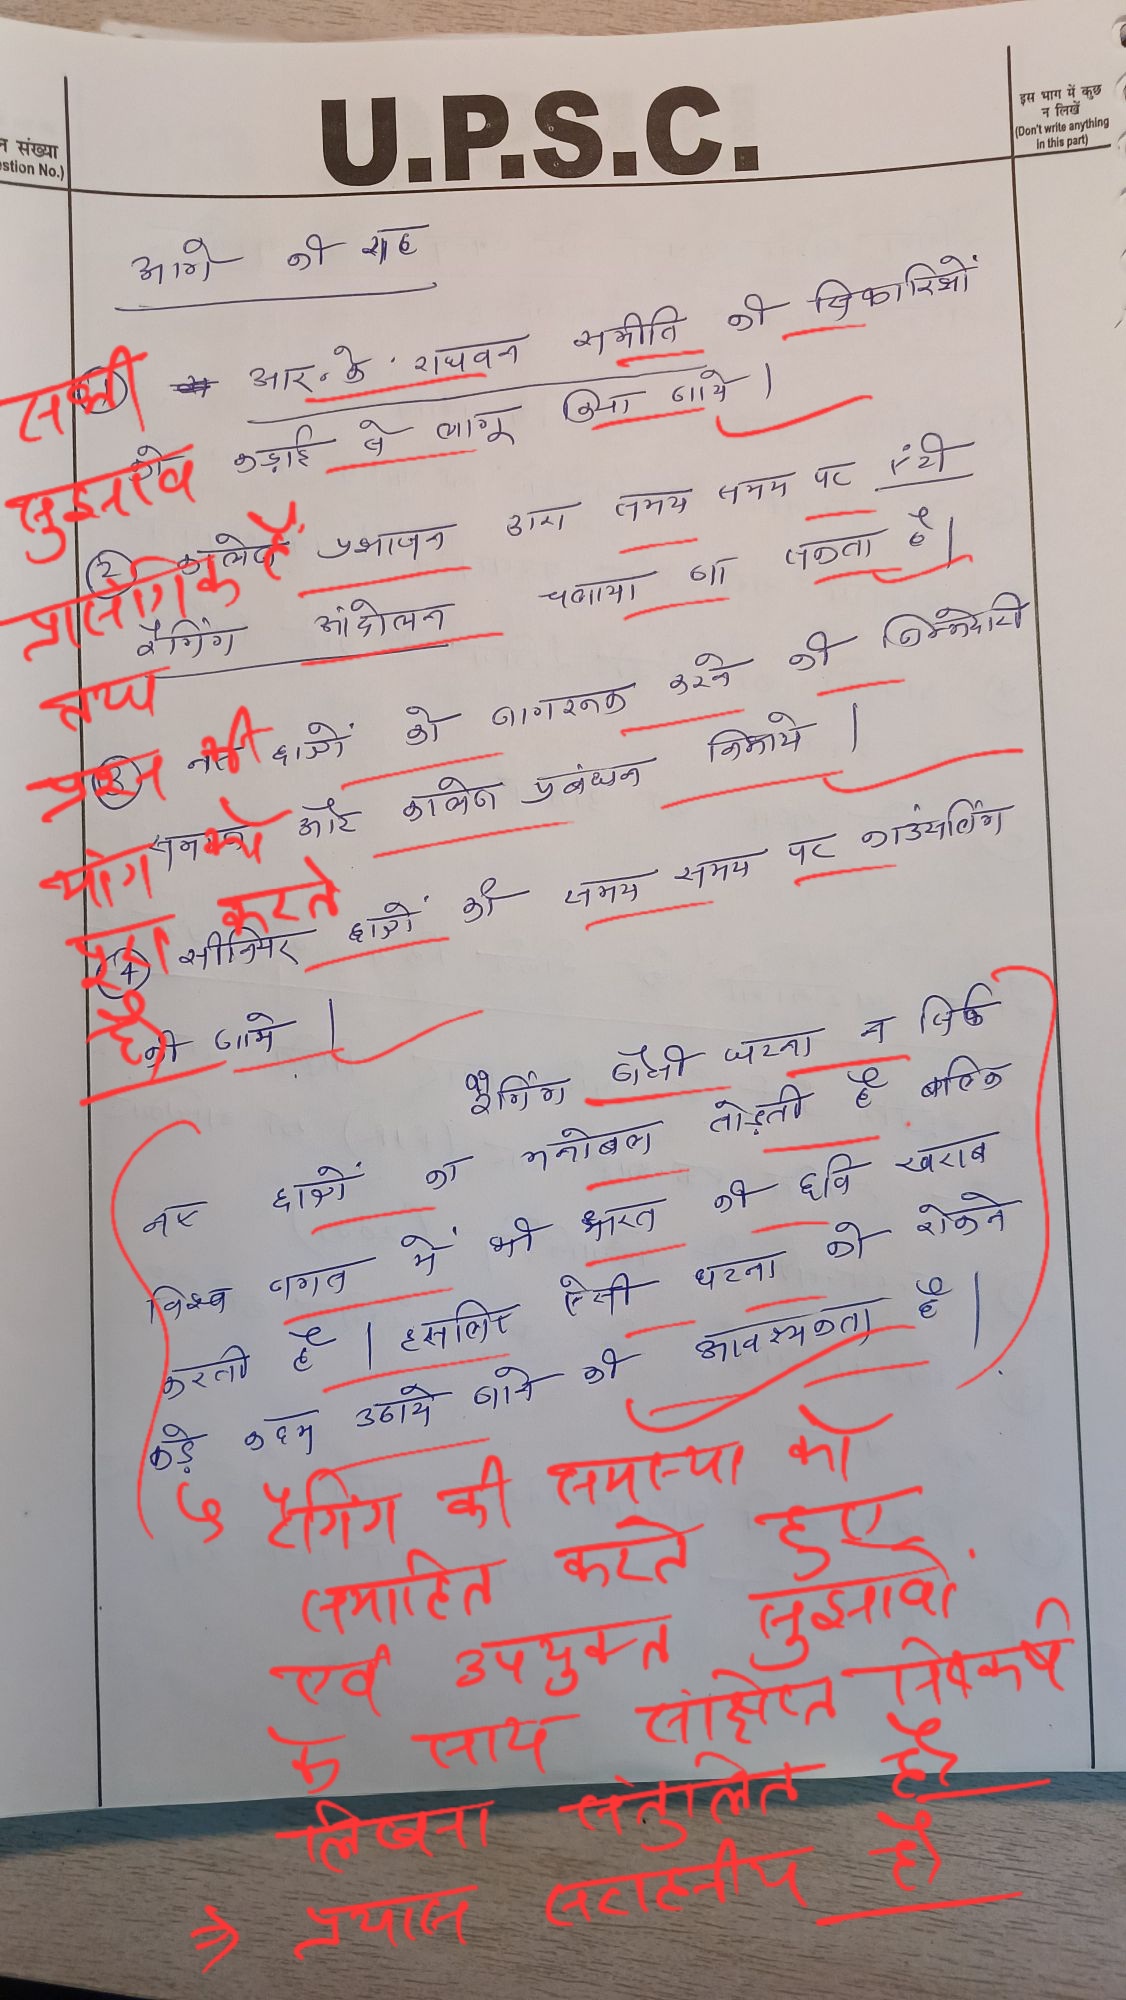 U.P.S.C.
न संख्या
estion No.)
इस भाग में कुछ
न लिखें
(Don't write anything
in this part)
आगे की राह
(1) आर. के. राघवन समीति की सिफारिशों
को कड़ाई से लागू किया जाये।
(2) कालेज प्रशासन द्वारा समय समय पर एंटी
रैगिंग आंदोलन चलाया जा सकता है।
(3) नए छात्रों को जागरुक करने की जिम्मेदारी
समाज और कालेज प्रबंधन निभाये।
(4) सीनियर छात्रों की समय समय पर काउंसलिंग
की जाये।
रैगिंग जैसी घटना न सिर्फ
नए छात्रों का मनोबल तोड़ती है बल्कि
विश्व जगत में भी भारत की छवि खराब
करती है। इसलिए ऐसी घटना को रोकने
कड़े कदम उठाये जाने की आवश्यकता है।
सभी
सुझाव
प्रासंगिक हैं
तथा
प्रश्न की
मांग को
पूरा करते
हैं
रैगिंग की समस्या को
समाहित करते हुए
एवं उपयुक्त सुझावों
के साथ संक्षिप्त निष्कर्ष
लिखना संतुलित है।
⇒ प्रयास सराहनीय है।